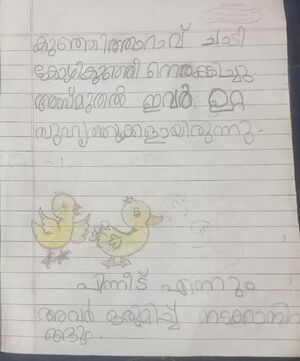 കുഞ്ഞിത്താറാവ് ചാടി
കോഴികുഞ്ഞി നെരക്ഷിച്ചു
അന്ന്മുതൽ ഇവർ ഉറ്റ
സുഹൃത്തുക്കളായിരുന്നു.
പിന്നീട് എന്നും
അവർ ഒരുമിച്ച് നടക്കാനിറ
ങ്ങും.